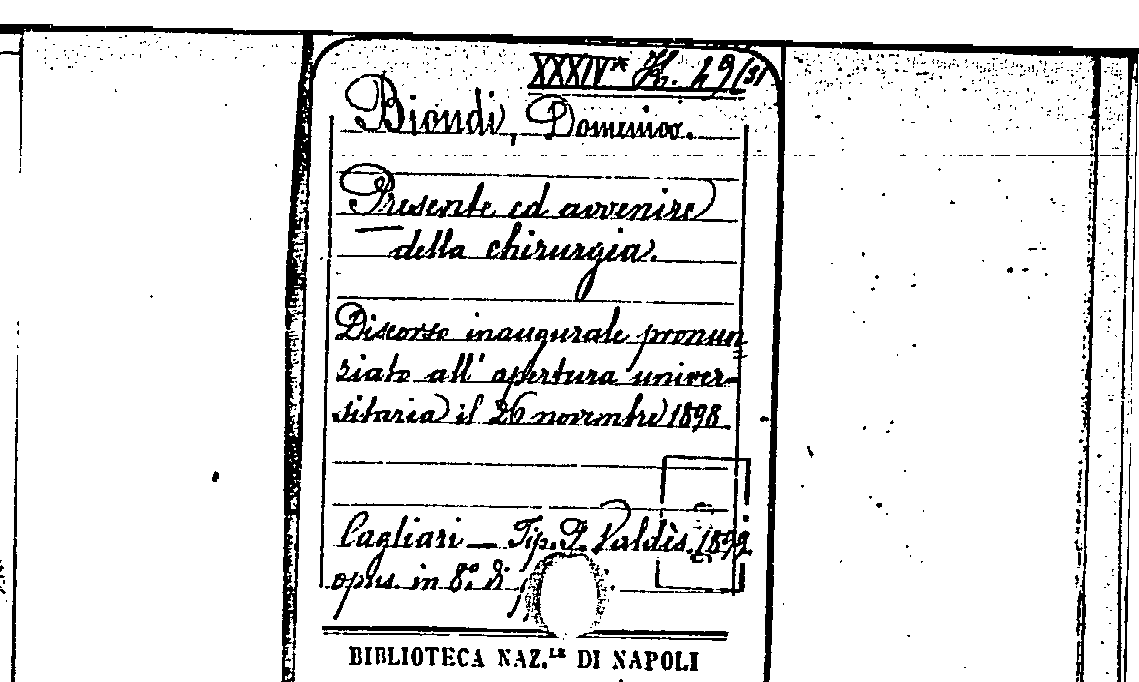 XXXIVª H. 49 (31
Biondi, Domenico.
Presente ed avvenire
della chirurgia.
Discorso inaugurale pronun
ziato all' apertura univer-
sitaria il 26 novembre 1898
Cagliari — Tip. P. Valdès. 1899.
opus. in 8º di p
BIBLIOTECA NAZ.LE DI NAPOLI